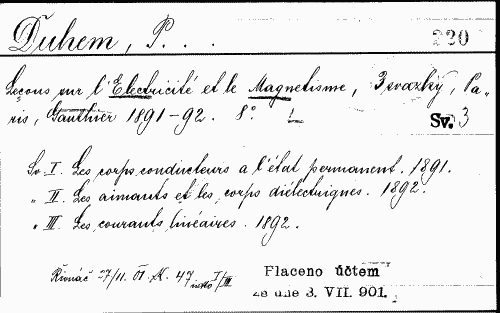 Duhem, P. . .
220
Leçons sur l'Electricité et le Magnetisme, 3 svazky, Pa„
ris, Gauthier 1891-92. 8°
Sv. 3
Sv. I. Les corps conducteurs a l'état permanent. 1891.
„ II. Les aimants et les corps diélectriques. 1892.
„ III. Les courants linéaires. 1892.
Řivnáč 27/11. 01. M. 47 netto I/III
Placeno účtem
ze dne 3. VII. 901.